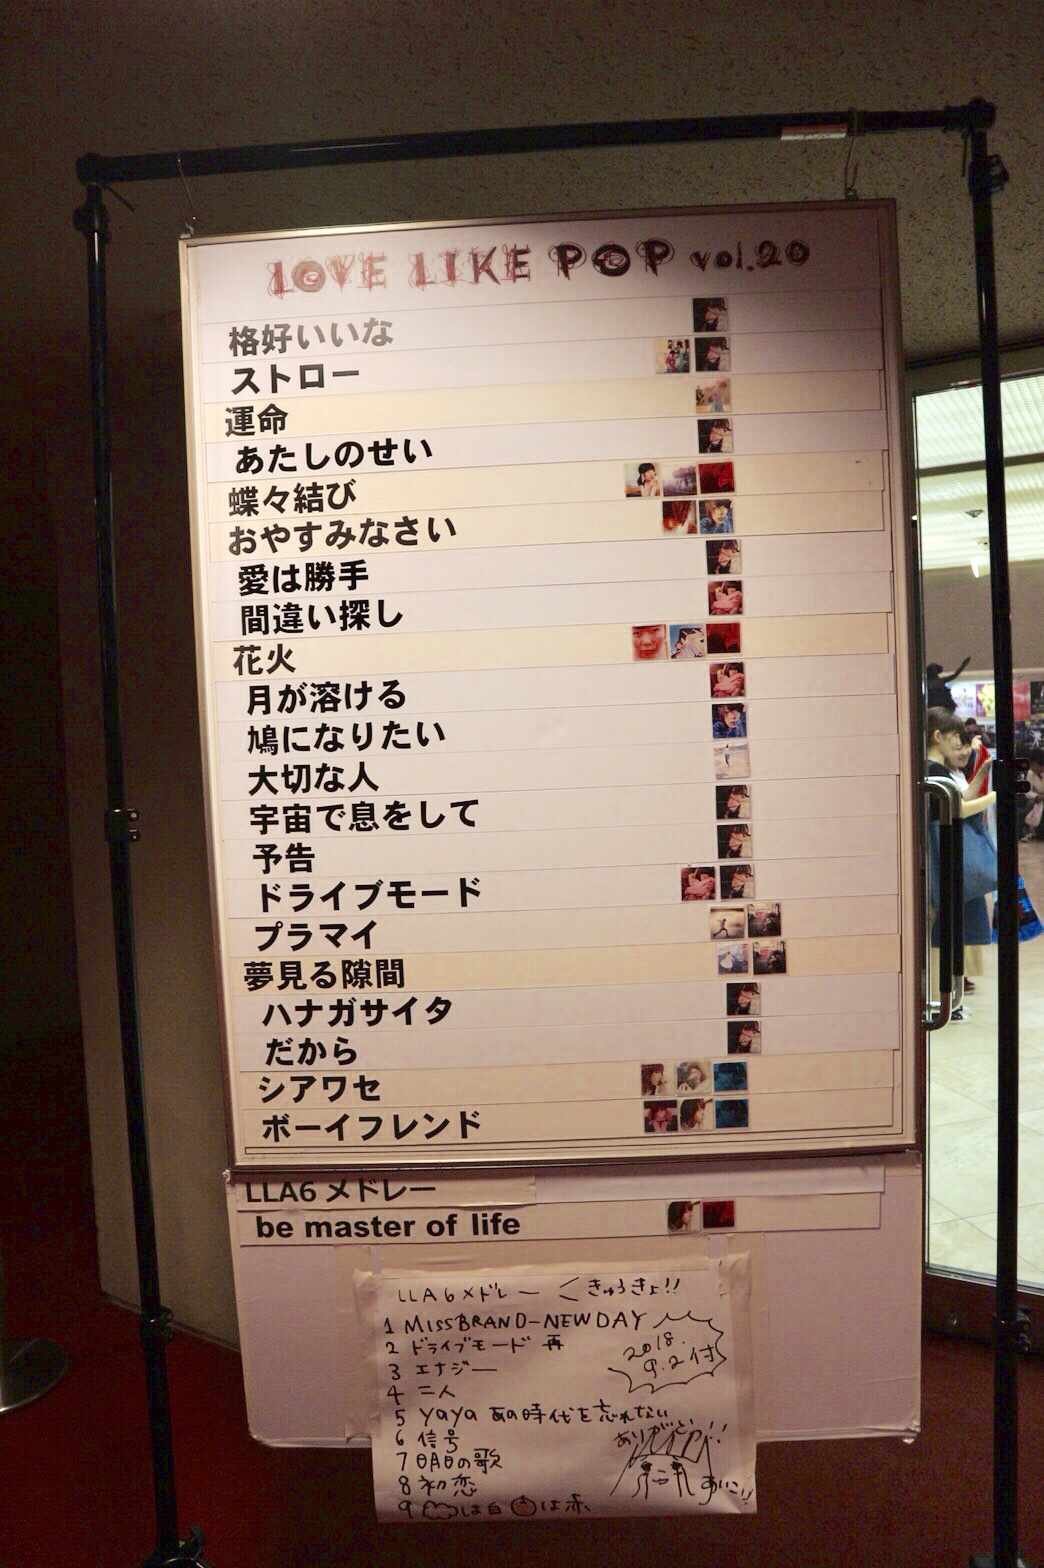 LOVE LIKE POP vol.20
格好いいな
ストロー
運命
あたしのせい
蝶々結び
おやすみなさい
愛は勝手
間違い探し
花火
月が溶ける
鳩になりたい
大切な人
宇宙で息をして
予告
ドライブモード
プラマイ
夢見る隙間
ハナガサイタ
だから
シアワセ
ボーイフレンド
LLA6メドレー
be master of life
LLA6メドレー きゅうきょ!!
1 MISS BRAND-NEW DAY
2 ドライブモード 再
3 エナジー
4 二人
5 YaYa あの時代を忘れない
6 信号
7 明日の歌
8 初恋
9 は白 は赤
2018.
9.2付